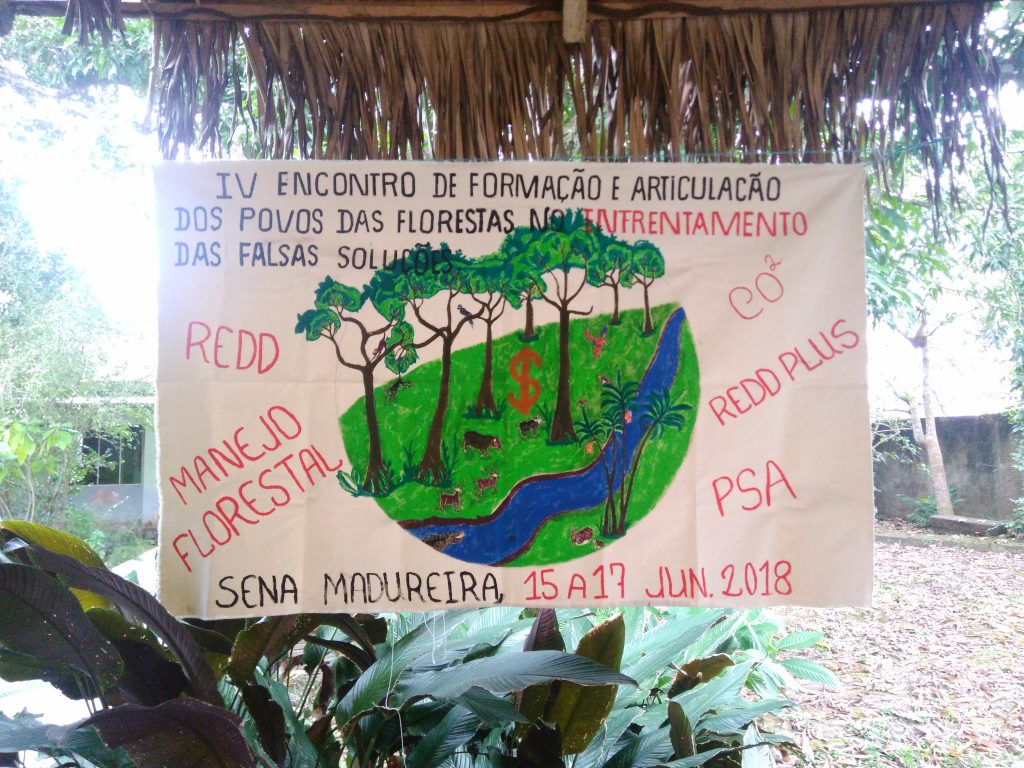 IV ENCONTRO DE FORMAÇÃO E ARTICULAÇÃO
DOS POVOS DAS FLORESTAS NO ENFRENTAMENTO
DAS FALSAS SOLUÇÕES
CO²
REDD
REDD PLUS
$
MANEJO
FLORESTAL
PSA
SENA MADUREIRA, 15 A 17 JUN. 2018